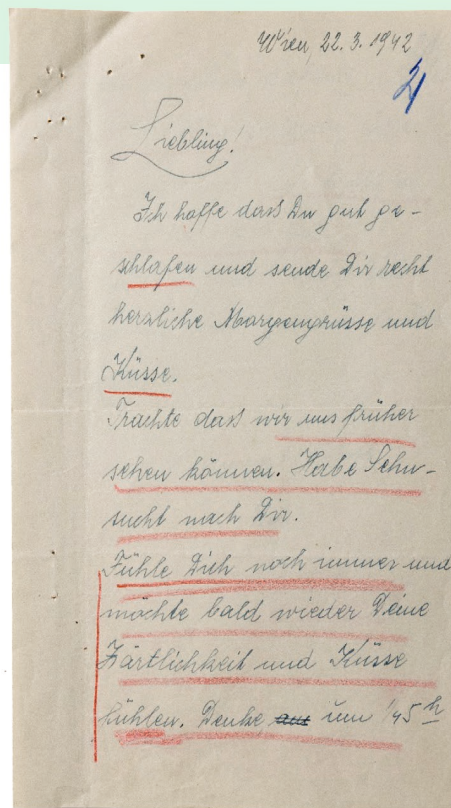 Wien, 22. 3. 1942
21
Liebling!
Ich hoffe dass Du gut ge-
schlafen und sende Dir recht
herzliche Morgengrüsse und
Küsse.
Trachte dass wir uns früher
sehen können. Habe Sehn-
sucht nach Dir.
Fühle Dich noch immer und
möchte bald wieder Deine
Zärtlichkeit und Küsse
fühlen. Denke aus um 1/45 h